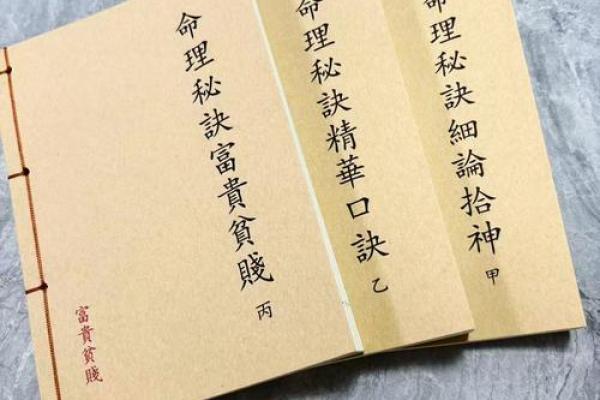 命理秘訣富貴貧賤
丙
富貴貧賤
命理秘訣精華口訣
乙
命理秘訣細論拾神
甲